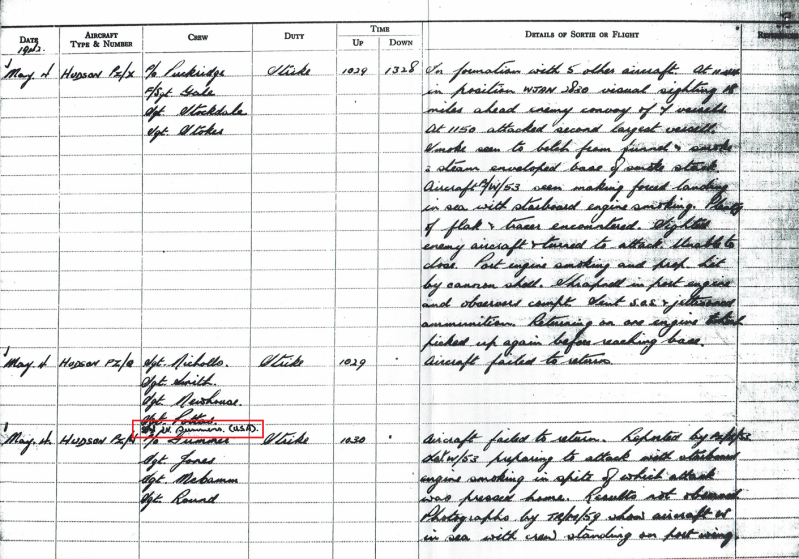 DATE
1942.
AIRCRAFT
TYPE & NUMBER
CREW
DUTY
TIME
UP
DOWN
DETAILS OF SORTIE OR FLIGHT
May. 4 HUDSON PZ/X P/O Puckridge Strike 1029 1328 In formation with 5 other aircraft. At
F/Sgt. Gale in position WJAN 2830 visual sighting 18
Sgt. Stockdale miles ahead enemy convoy of 7 vessels
Sgt. Stokes At 1150 attacked second largest vessel.
Smoke seen to belch from funnel & smoke
& steam enveloped base of smoke stack.
Aircraft W/53 seen making forced landing
in sea with starboard engine smoking. Plenty
of flak & tracer encountered. Sighted
enemy aircraft & turned to attack. Unable to
close. Port engine smoking and prop hit
by cannon shell. Shrapnell in port engine
and observers compt. Sent S.O.S & jettisoned
ammunition. Returning on one engine
picked up again before reaching base.
May. 4 HUDSON PZ/Q Sgt. Nicholls. Strike 1029 Aircraft failed to return
Sgt. Smith.
Sgt. Newhouse.
Sgt. Potton
W. (U.S.A).
May. 4. HUDSON Strike 1030 Aircraft failed to return. Reported by
Sgt. Jones W/53 preparing to attack with starboard
Sgt. engine smoking in spite of which attack
Sgt. Round was pressed home. Results not observed
Photographs by show aircraft
in sea with crew standing on port wing.